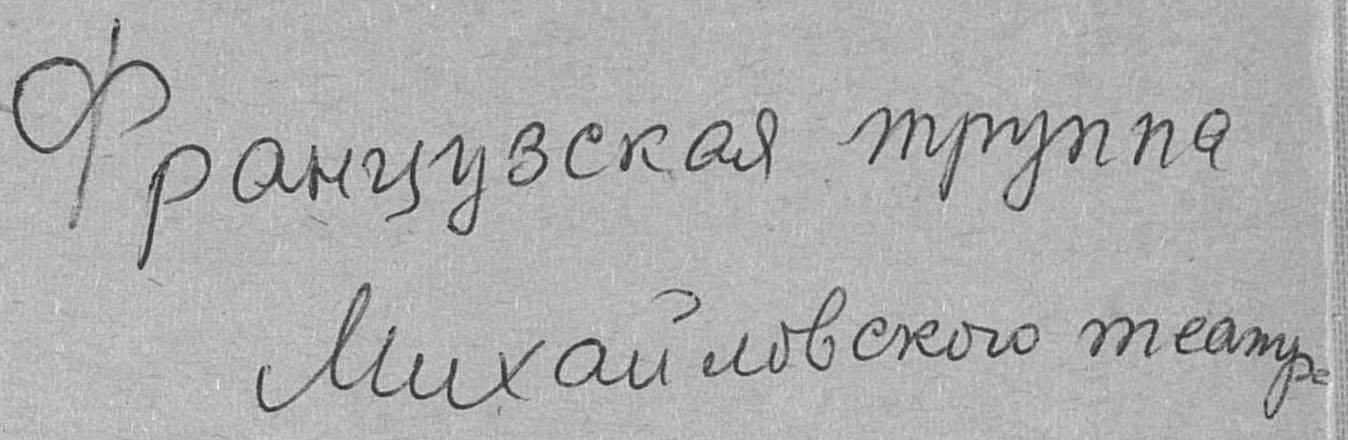 Французская труппа
Михайловского театра